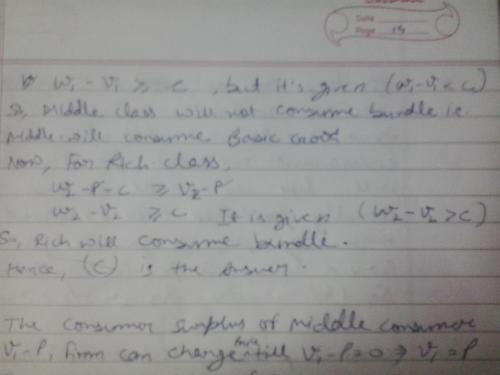 Date
Page 15
⇒ W₁ - V₁ ≥ C , but it's given (W₁-V₁ < C)
So, Middle class will not consume bundle i.e.
Middle will consume Basic Good
Now, For Rich class,
W₂ - P - C ≥ V₂ - P
W₂ - V₂ ≥ C It is given (W₂ - V₂ > C)
So, Rich will consume bundle.
Hence, (C) is the Answer.
The consumer surplus of middle consumer
V₁-P, firm can charge till V₁-P=0 ⇒ V₁=P